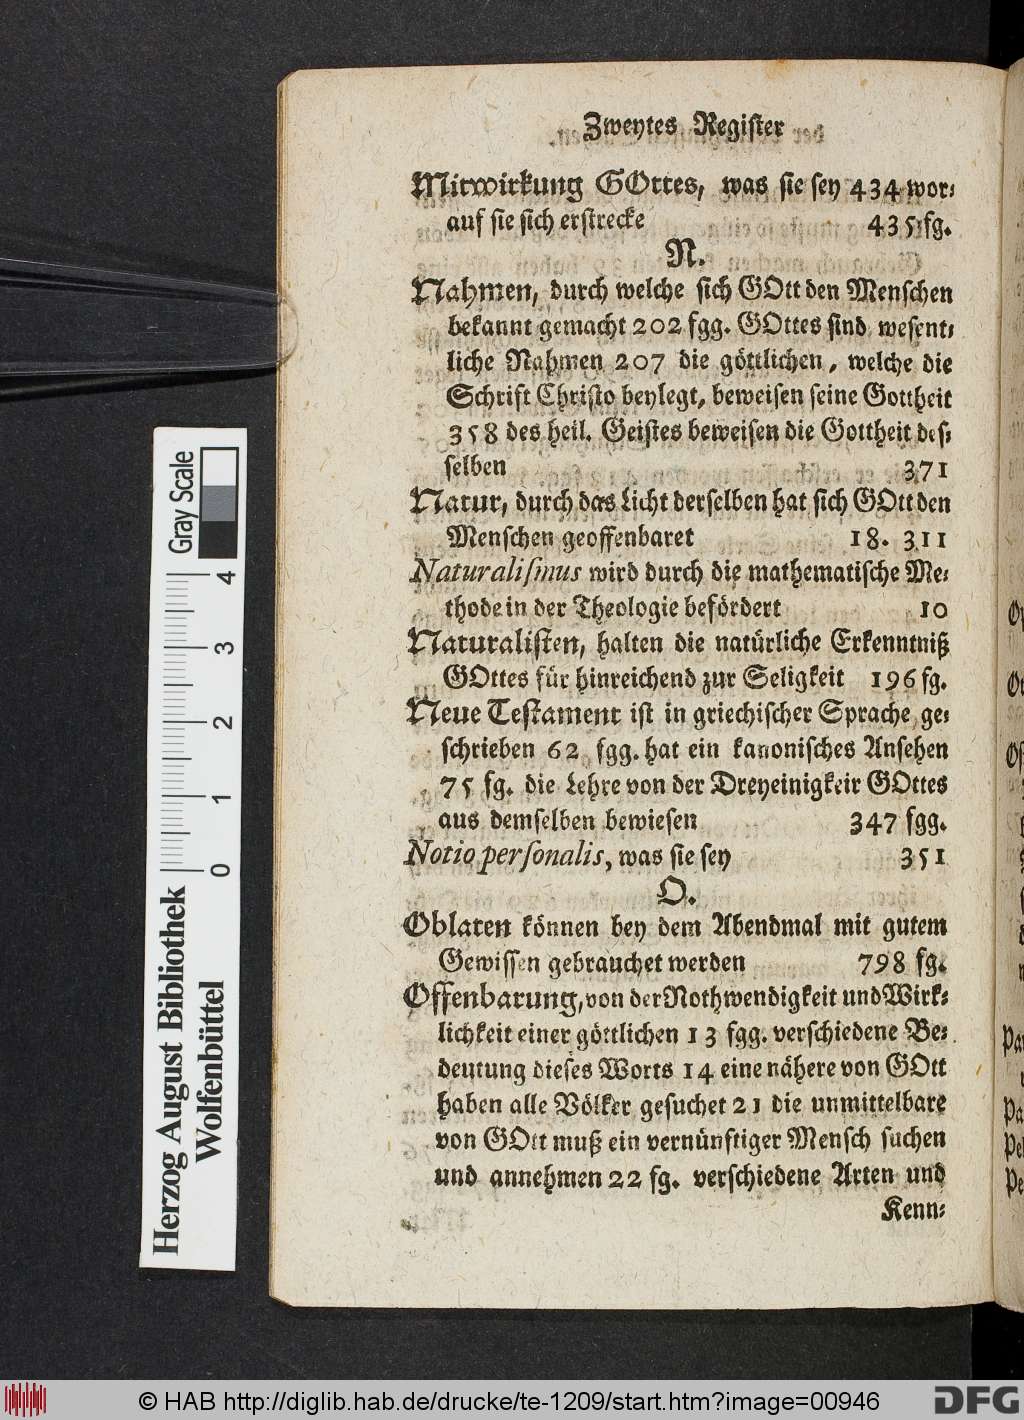 Zweytes Register
Mitwirkung GOttes, was sie sey 434 wor⸗
auf sie sich erstrecke 435 fg.
N.
Nahmen, durch welche sich GOtt den Menschen
bekannt gemacht 202 fgg. GOttes sind wesent⸗
liche Nahmen 207 die göttlichen, welche die
Schrift Christo beylegt, beweisen seine Gottheit
358 des heil. Geistes beweisen die Gottheit des⸗
selben 371
Natur, durch das Licht derselben hat sich GOtt den
Menschen geoffenbaret 18. 311
Naturaliſmus wird durch die mathematische Me⸗
thode in der Theologie befördert 10
Naturalisten, halten die natürliche Erkenntniß
GOttes für hinreichend zur Seligkeit 196 fg.
Neue Testament ist in griechischer Sprache ge⸗
schrieben 62 fgg. hat ein kanonisches Ansehen
75 fg. die Lehre von der Dreyeinigkeir GOttes
aus demselben bewiesen 347 fgg.
Notio perſonalis, was sie sey 351
O.
Oblaten können bey dem Abendmal mit gutem
Gewissen gebrauchet werden 798 fg.
Offenbarung, von der Nothwendigkeit und Wirk⸗
lichkeit einer göttlichen 13 fgg. verschiedene Be⸗
deutung dieses Worts 14 eine nähere von GOtt
haben alle Völker gesuchet 21 die unmittelbare
von GOtt muß ein vernünftiger Mensch suchen
und annehmen 22 fg. verschiedene Arten und
Kenn⸗
Gray Scale
0 1 2 3 4
Herzog August Bibliothek
Wolfenbüttel
© HAB http://diglib.hab.de/drucke/te-1209/start.htm?image=00946
DFG